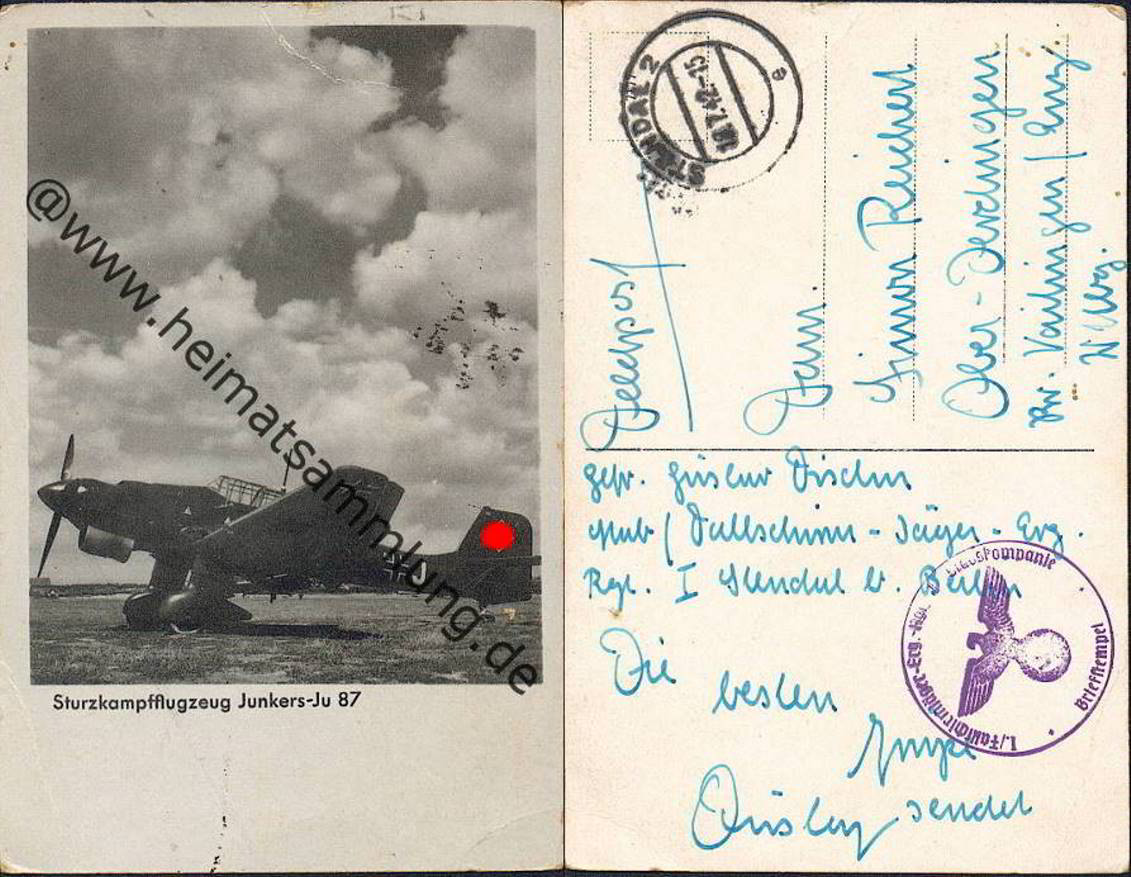 @www.heimatsammlung.de
Sturzkampfflugzeug Junkers-Ju 87
STENDAL 2
18.7.42-15
e
Feldpost
Fam.
Simon Reichert
Ober-Derdingen
Kr. Vaihingen / Enz.
Wttbg.
Gefr. Gustav Fischer
Stab / Fallschirm-Jäger-Erg.
Rgt. I Stendal b. Berlin
Die
besten
Grüße
sendet
1./Fallschirmjäger-Erg.-Rgt.
Briefstempel